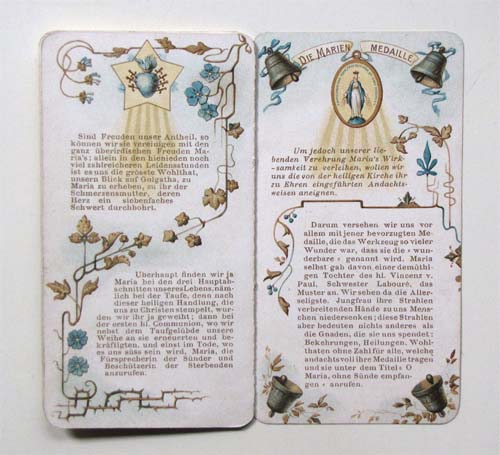 Sind Freuden unser Antheil, so
können wir sie vereinigen mit den
ganz überirdischen Freuden Ma-
ria's; allein in den hienieden noch
viel zahlreicheren Leidensstunden
ist es uns die grösste Wohlthat,
unsern Blick auf Golgatha, zu
Maria zu erheben, zu ihr der
Schmerzensmutter, deren
Herz ein siebenfaches
Schwert durchbohrt.
Überhaupt finden wir ja
Maria bei den drei Hauptab-
schnitten unseres Lebens, näm-
lich bei der Taufe, denn nach
dieser heiligen Handlung, die
uns zu Christen stempelt, wur-
den wir ihr geweiht; dann bei
der ersten hl. Communion, wo wir
nebst dem Taufgelübde unsere
Weihe an sie erneuerten und be-
kräftigten, und einst im Tode, wo
es uns süss sein wird, Maria, die
Fürsprecherin der Sünder und
Beschützerin der Sterbenden
anzurufen.
DIE MARIEN MEDAILLE
Um jedoch unserer lie-
benden Verehrung Maria's Wirk-
samkeit zu verleihen, wollen wir
uns die von der heiligen Kirche ihr
zu Ehren eingeführten Andachts-
weisen aneignen.
Darum versehen wir uns vor
allem mit jener bevorzugten Me-
daille, die das Werkzeug so vieler
Wunder war, dass sie die » wunder-
bare « genannt wird. Maria
selbst gab davon einer demüthi-
gen Tochter des hl. Vincenz v.
Paul, Schwester Labouré, das
Muster an. Wir sehen da die Aller-
seligste. Jungfrau ihre Strahlen
verbreitenden Hände zu uns Men-
schen niedersenken; diese Strahlen
aber bedeuten nichts anderes als
die Gnaden, die sie uns spendet:
Bekehrungen, Heilungen, Wohl-
thaten ohne Zahl für alle, welche
andachtsvoll ihre Medaille tragen
und sie unter dem Titel » O
Maria, ohne Sünde empfan-
gen « anrufen.